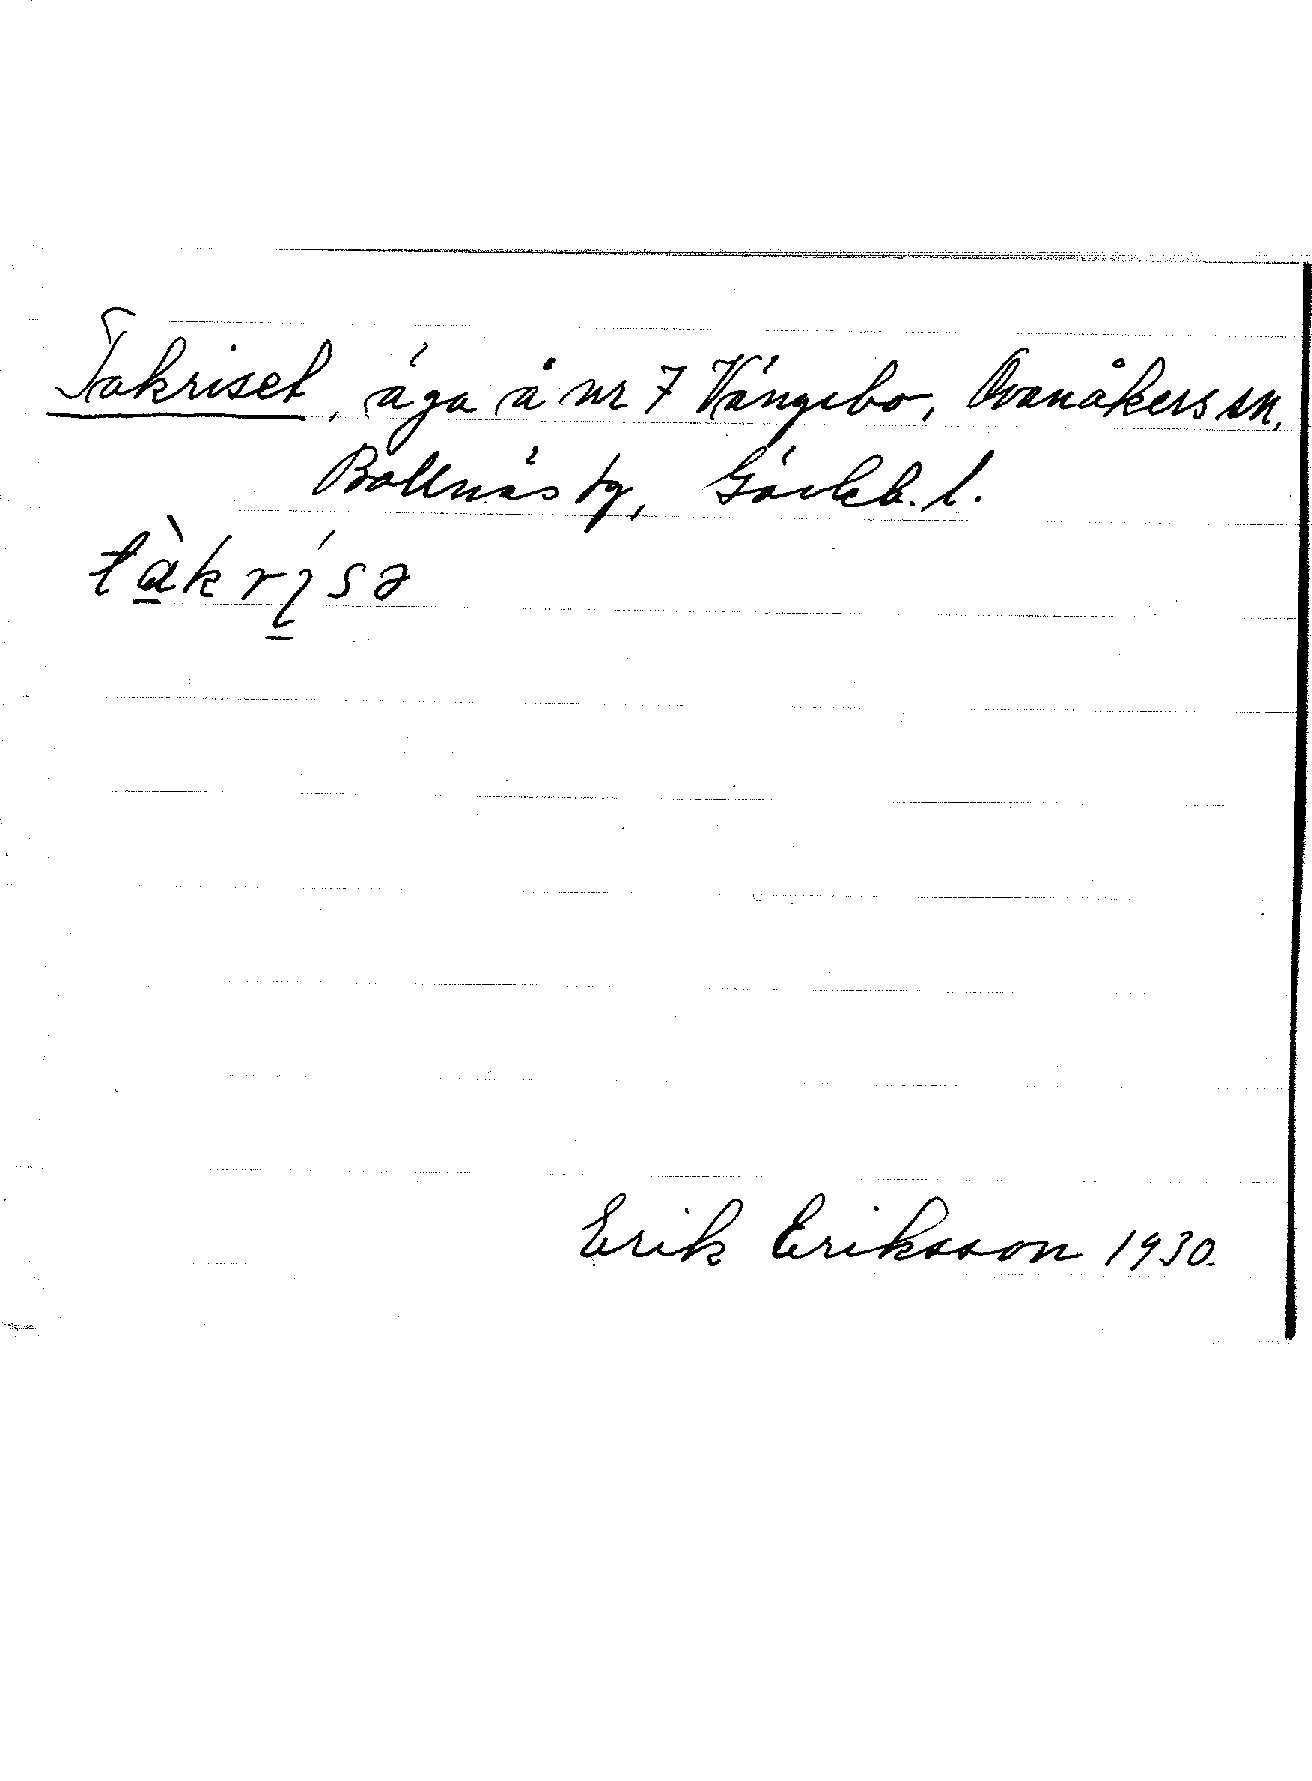 Takriset, äga å nr 7 Vängsbo, Ovanåkers sn,
Bollnäs tg, Gävleb. l.
tàkrı̨́sə
Erik Eriksson 1930.